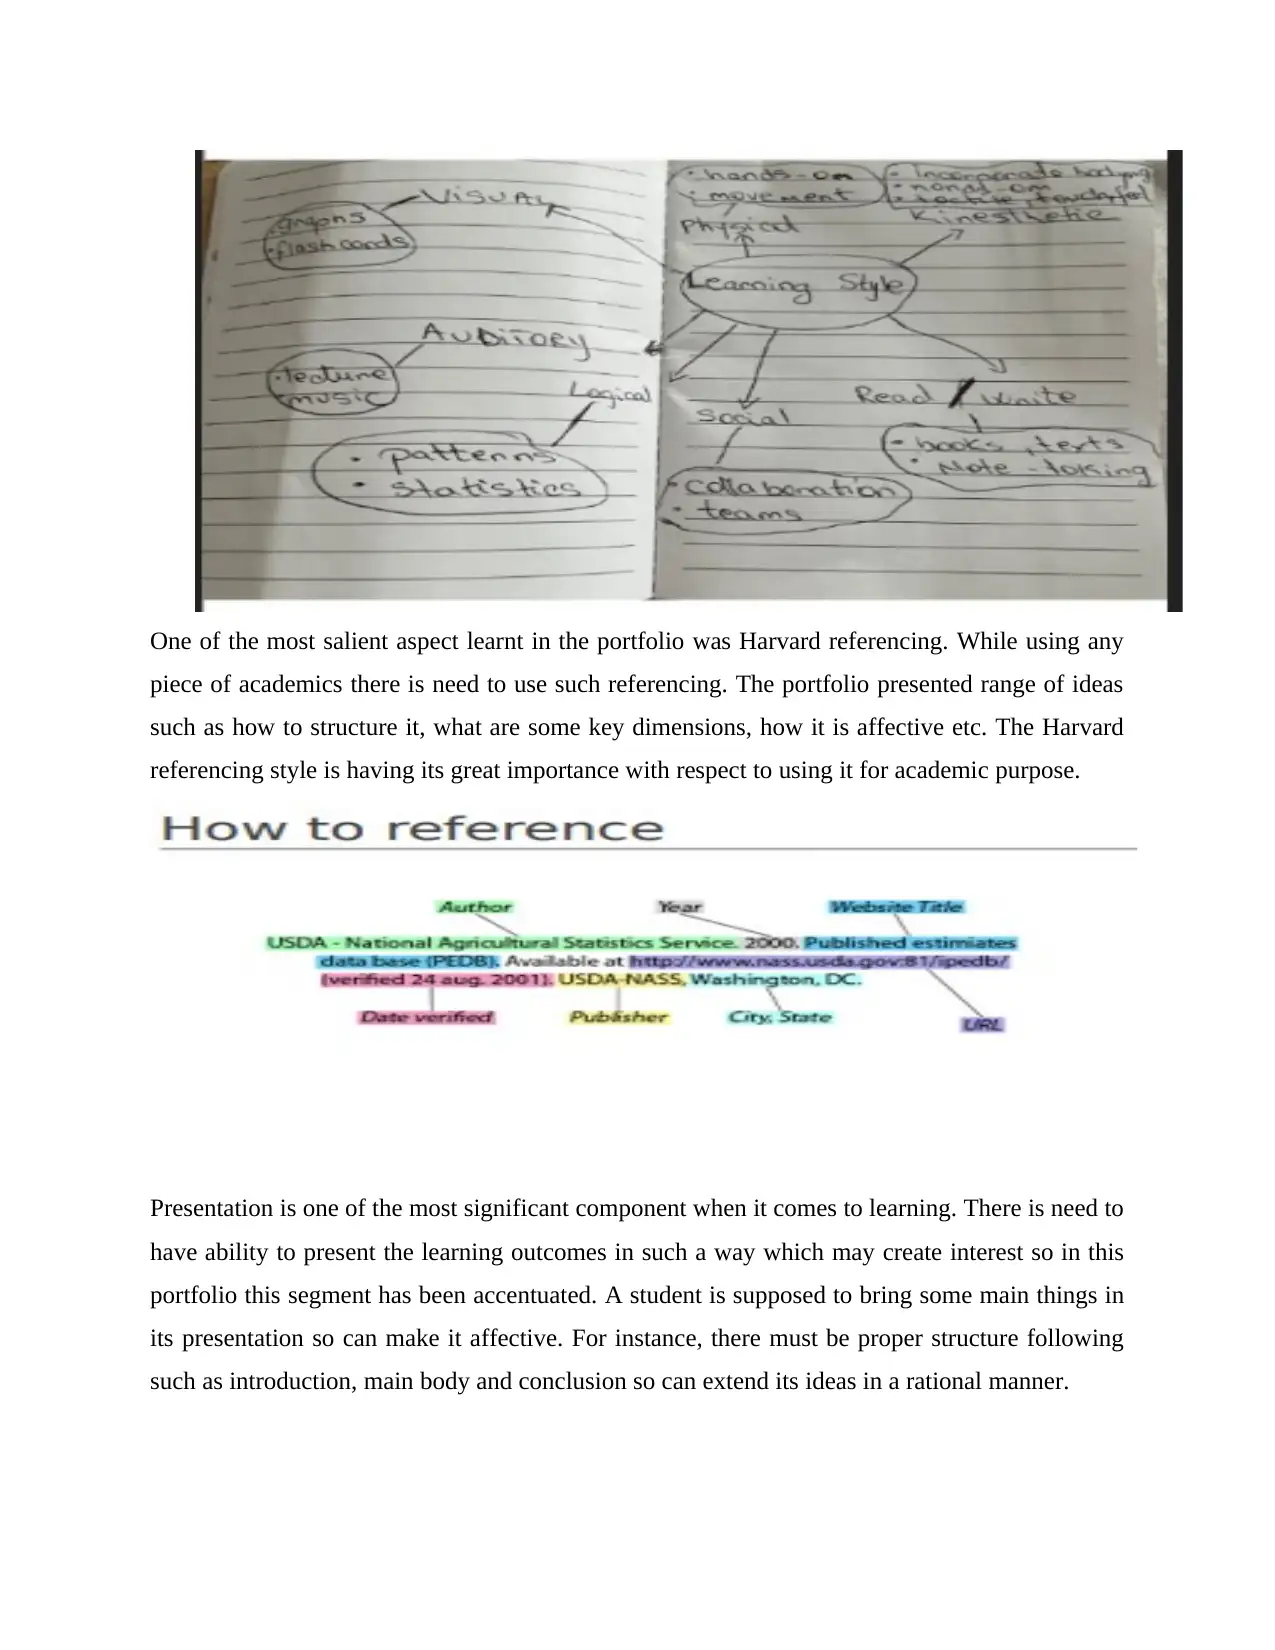 • hands-on
• movement
• Incorporate
• hands-on
• tactile, touch, feel
VISUAL
Physical
Kinesthetic
graphs
• flashcards
Learning Style
AUDITORY
• lecture
music
Logical
Read / Write
Social
• patterns
• statistics
• books, texts
• Note-taking
• collaboration
• teams
One of the most salient aspect learnt in the portfolio was Harvard referencing. While using any
piece of academics there is need to use such referencing. The portfolio presented range of ideas
such as how to structure it, what are some key dimensions, how it is affective etc. The Harvard
referencing style is having its great importance with respect to using it for academic purpose.
How to reference
Author Year Website Title
USDA - National Agricultural Statistics Service. 2000. Published estimiates
data base (PEDB). Available at http://www.nass.usda.gov:81/ipedb/
(verified 24 aug. 2001). USDA-NASS, Washington, DC.
Date verified Publisher City, State URL
Presentation is one of the most significant component when it comes to learning. There is need to
have ability to present the learning outcomes in such a way which may create interest so in this
portfolio this segment has been accentuated. A student is supposed to bring some main things in
its presentation so can make it affective. For instance, there must be proper structure following
such as introduction, main body and conclusion so can extend its ideas in a rational manner.